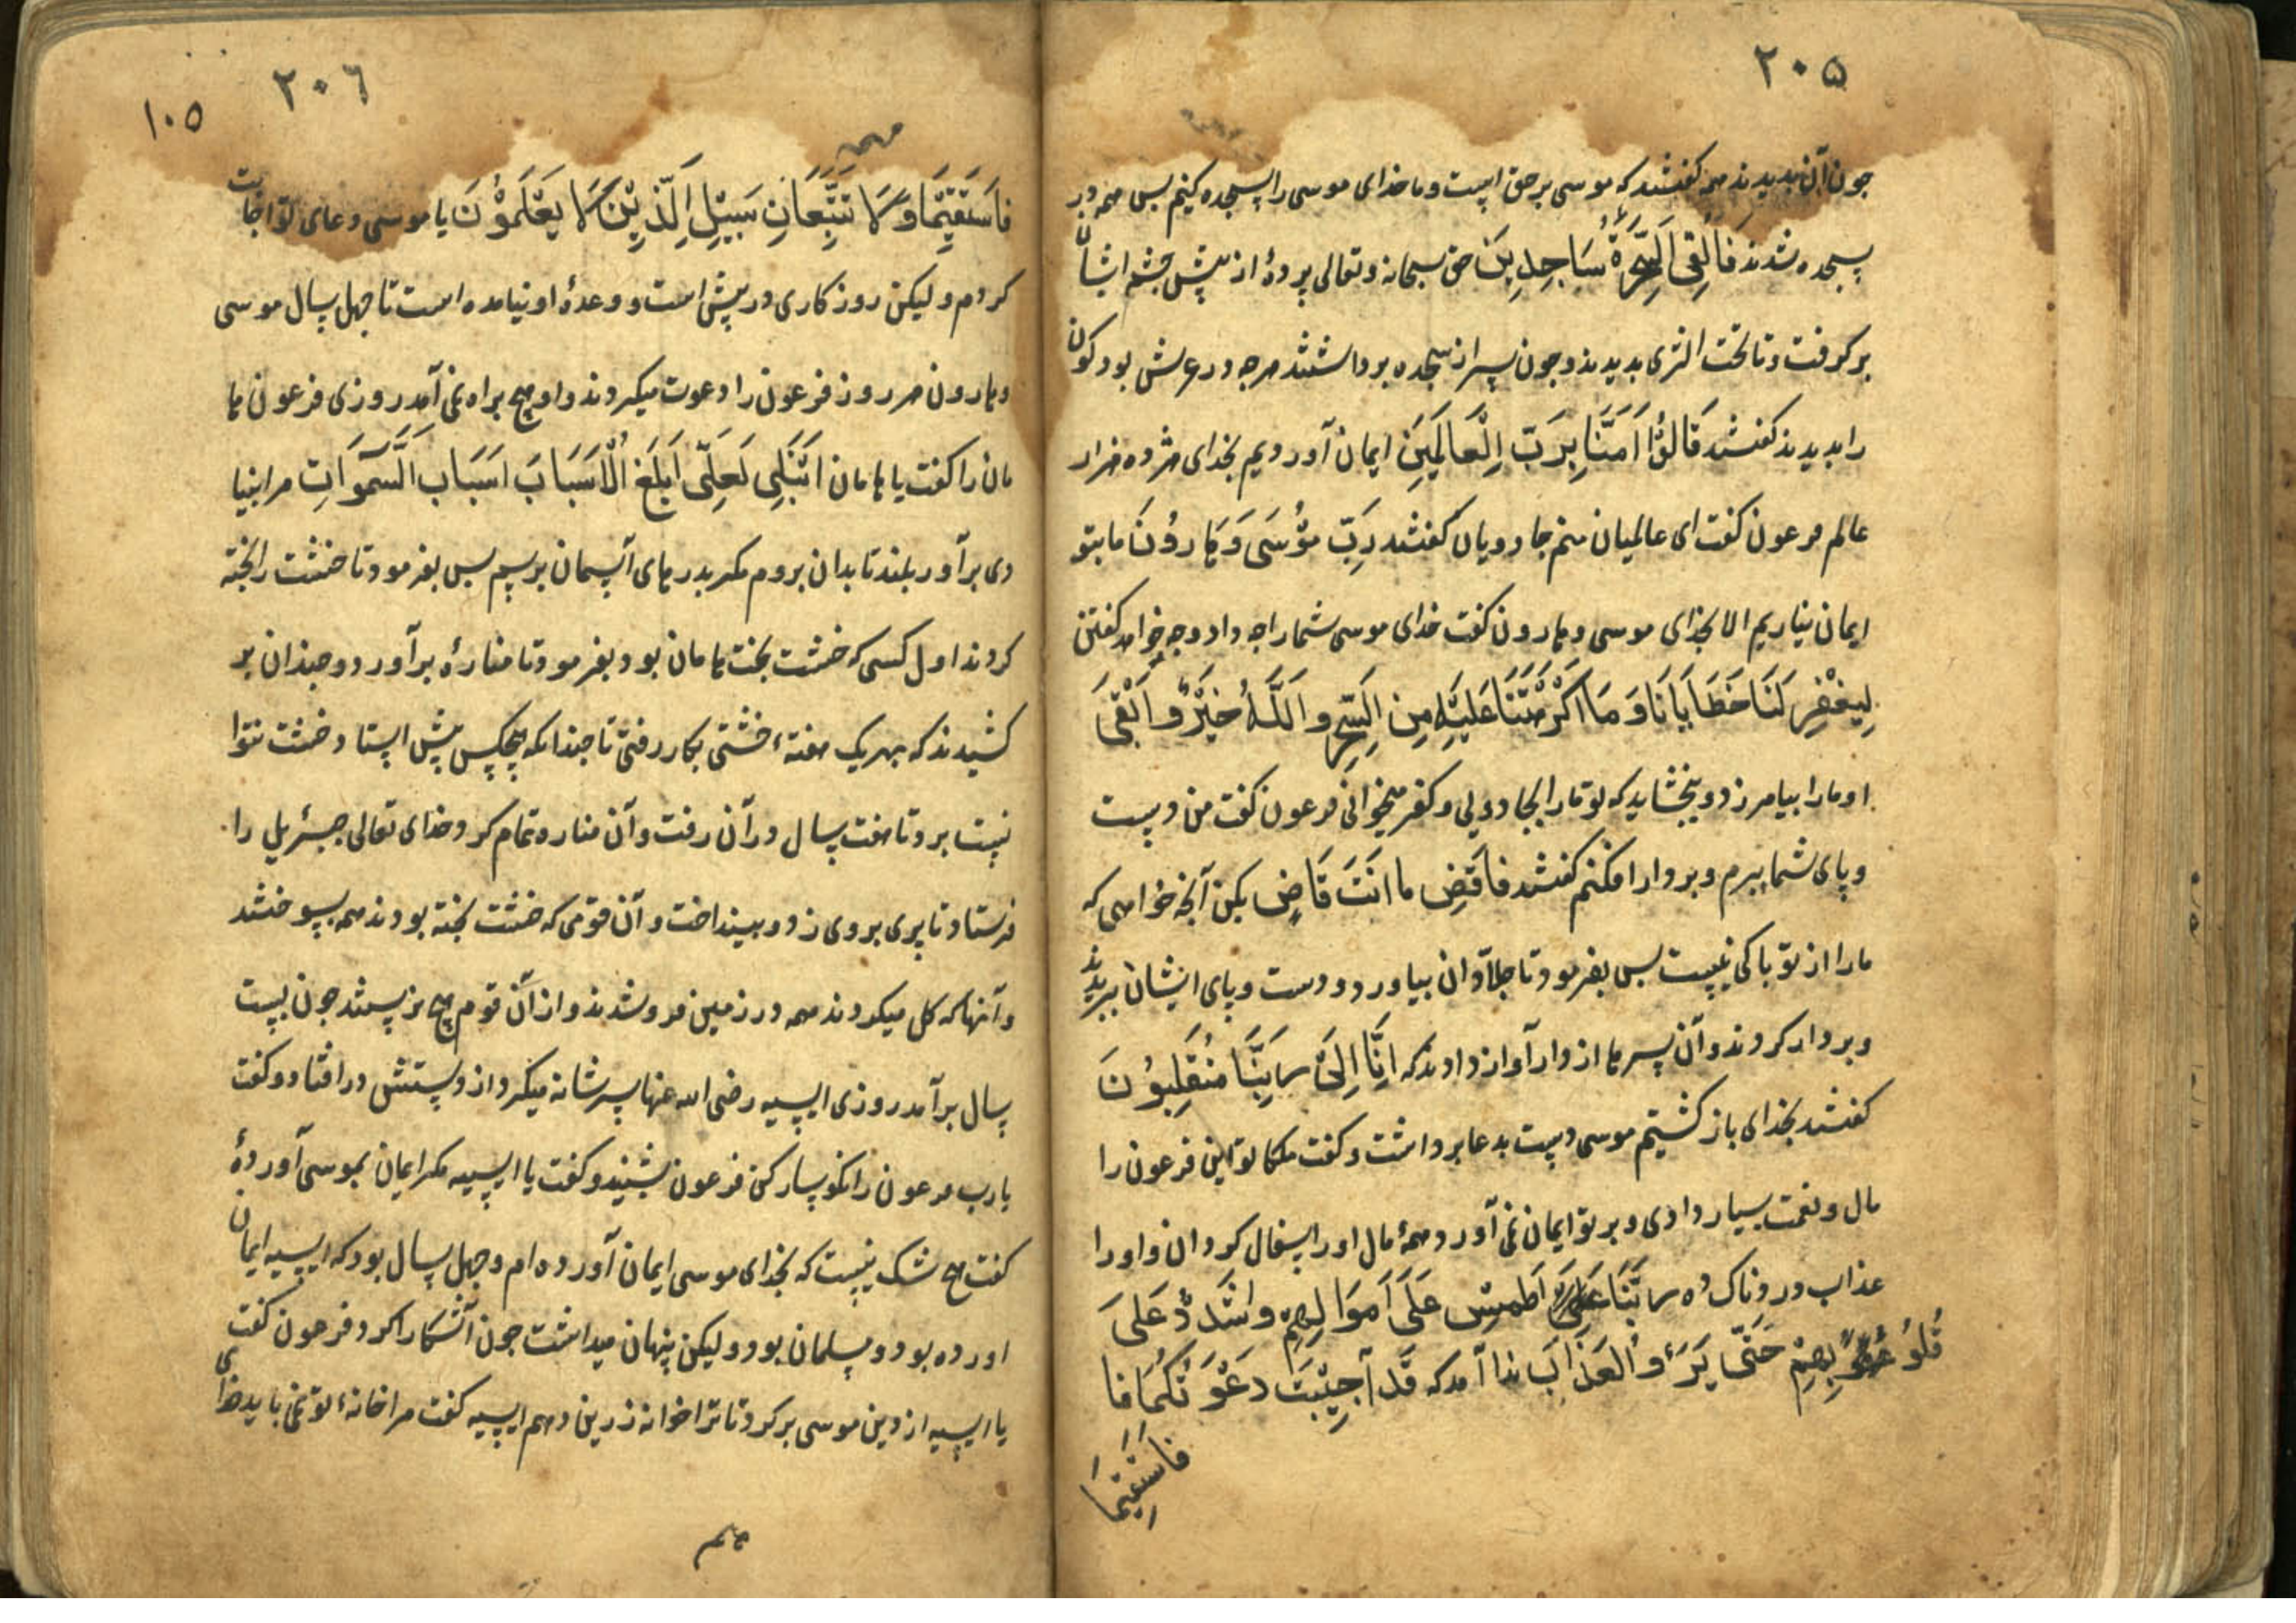 ۲۰۵
جون آن بدیدند همه کفتند که موسی برحق است و ما خدای موسی را سجده کنیم بس همه در
سجده شدند فَاُلْقِیَ السَّحَرَةُ سَاجِدِینَ حق سبحانه وتعالی پردهٔ از پیش جشم ایشان
برکرفت و تا تحت الثری بدیدند و جون سر از سجده برداشتند هرجه در عرش بود کون
را بدیدند کفتند قَالُوْا اَمَنَّا بِرَبِّ الْعَالَمِینَ ایمان آوردیم بخدای هژده هزار
عالم فرعون کفت ای عالمیان منم جادویان کفتند رَبِّ مُوْسَی وَهَارُوْنَ ما بتو
ایمان نیاریم الا بخدای موسی و هارون کفت خدای موسی شما را جه داد و جه خواهد کفتن
لِیَغْفِرَ لَنَا خَطَایَانَا وَمَا اَکْرَهْتَنَا عَلَیْهِ مِنَ السِّحْرِ وَاللَّهُ خَیْرٌ وَاَبْقَی
او ما را بیامرزد و ببخشاید که تو ما را بجادویی و کفر میخوانی فرعون کفت من دست
و پای شما ببرم و بردار افکنم کفتند فاقْضِ ما اَنْتَ قَاضٍ بکن آنجه خواهی که
ما را از تو باکی نیست بس بفرمود تا جلادان بیاورد و دست و پای ایشان ببریدند
و بردار کردند و آن سرها از دار آواز دادند که اِنَّا اِلَی رَبِّنَا مُنْقَلِبُوْنَ
کفتند بخدای باز کشتیم موسی دست بدعا برداشت و کفت ملکا تو این فرعون را
مال و نعمت بسیار دادی و بر تو ایمان نمی آورد همهٔ مال او را سفال کردان و او را
عذاب دردناک ده رَبَّنَا اَطْمِسْ عَلَی اَمْوَالِهِمْ وَاشْدُدْ عَلَی
قُلُوْبِهِمْ حَتَّی یَرَوُ الْعَذَابَ ندا آمد که قَدْ اُجِیْبَتْ دَعْوَتُکُمَا فَا
فاسْتَقِیْمَا
۲۰۶
۱۰۵
فَاسْتَقِیْمَا وَلَا تَتَّبِعَانِ سَبِیْلَ الَّذِیْنَ لَا یَعْلَمُوْنَ یا موسی دعای تو اجابت
کردم ولیکن روزکاری در پیش است و وعدهٔ او نیامده است تا جهل سال موسی
و هارون هر روز فرعون را دعوت میکردند و او هیچ براه نمی آمد روزی فرعون ها
مان را کفت یا هامان اَبْنِ لِی لَعَلِّی اَبْلُغُ الْاَسْبَابَ اَسْبَابَ السَّمَوَاتِ مرا بنیا
دی برآور بلند تا بدان بروم مکر بدرهای آسمان برسیم بس بفرمود تا خشت را بخته
کردند اول کسی که خشت بخت هامان بود بفرمود تا منارهٔ برآورد و جندان بر
کشیدند که بهر یک هفتهٔ خشتی بکار رفتی تا جندانکه هیجکس پیش استاد خشت نتوا
نست برد تا هفت سال در آن رفت و آن مناره تمام کرد خدای تعالی جبرئیل را
فرستاد تا پری بروی زد و بینداخت و آن قومی که خشت بخته بودند همه بسوختند
و آنها که کل میکردند همه در زمین فرو شدند و از آن قوم هیچ نرستند جون بیست
سال برآمد روزی ایسیه رضی الله عنها سر شانه میکرد از دستش در افتاد و کفت
یارب فرعون را نکوسار کن فرعون بشنید و کفت یا ایسیه مکر ایمان بموسی آوردهٔ
کفت هیچ شک نیست که بخدای موسی ایمان آورده ام و جهل سال بود که ایسیه ایمان
اورده بود و مسلمان بود و لیکن پنهان میداشت جون آشکارا کرد فرعون کفت
یا ایسیه از دین موسی برکرد تا ترا خوانه زرین دهم ایسیه کفت مرا خانهٔ تو نمی باید خدای